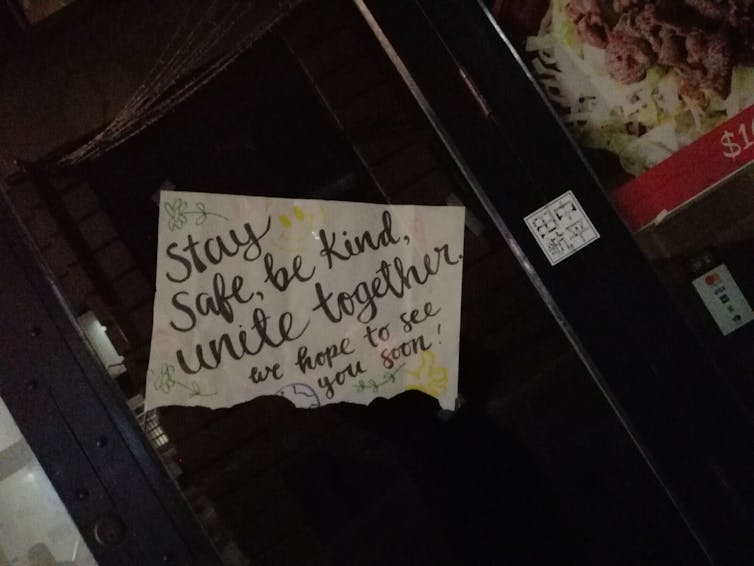 Stay
Safe, be kind,
unite together.
we hope to see
you soon!